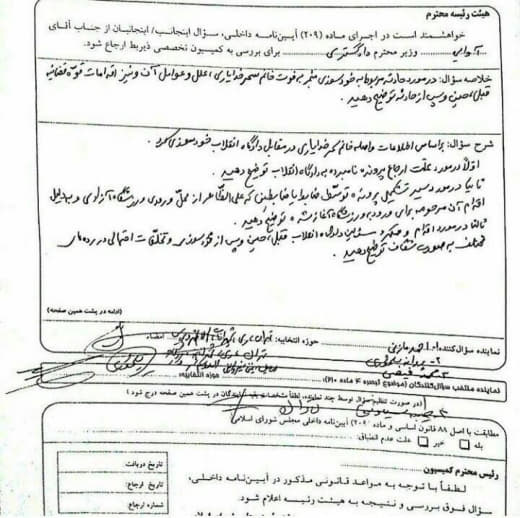 هیئت رئیسه محترم
خواهشمند است در اجرای ماده (۲۰۹) آیین‌نامه داخلی، سؤال اینجانب/ اینجانبان از جناب آقای
آوایی وزیر محترم دادگستری برای بررسی به کمیسیون تخصصی ذیربط ارجاع شود.
خلاصه سؤال: در مورد حادثه مربوط به خودسوزی منجر به فوت خانم سحر خدایاری، علل و عوامل آن و نیز اقدامات قوه قضائیه
قبل، حین و پس از حادثه توضیح دهید.
شرح سؤال: براساس اطلاعات واصله خانم سحر خدایاری در مقابل دادگاه انقلاب خودسوزی کرد.
اولاً در مورد علت ارجاع پرونده نامبرده به دادگاه انقلاب توضیح دهید.
ثانیا در مورد مسیر تشکیل پرونده توسط ضابط یا ضابطینی که علی الظاهر از محل ورودی ورزشگاه آزادی و بدلیل
اقدام آن مرحومه برای ورود به ورزشگاه آغاز شده توضیح دهید.
ثالثا در مورد اقدام و عملکرد مسئولین دادگاه انقلاب قبل، حین و پس از خودسوزی و تخلفات احتمالی در رده های
مختلف به صورت شفاف توضیح دهید.
(ادامه در پشت همین صفحه)
نماینده سؤال‌کننده: ۱- احمد مازنی حوزه انتخابیه: تهران، ری امضاء
۲- پروانه سلحشوری تهران، ری
۳-
نماینده منتخب سؤال‌کنندگان (موضوع تبصره ۴ ماده ۲۱۰): حوزه انتخابیه:
(در صورت تنظیم سؤال توسط چند نماینده، لطفاً مشخصات بقیه نمایندگان در پشت همین صفحه درج شود)
مطابقت با اصل ۸۸ قانون اساسی و ماده ۲۰۹ آیین‌نامه داخلی مجلس شورای اسلامی
بله خیر علت عدم انطباق:
رئیس محترم کمیسیون
لطفاً با توجه به مواعد قانونی مذکور در آیین‌نامه داخلی،
سؤال فوق بررسی و نتیجه به هیئت رئیسه اعلام شود.
تاریخ دریافت:
تاریخ ارجاع:
شماره ارجاع: